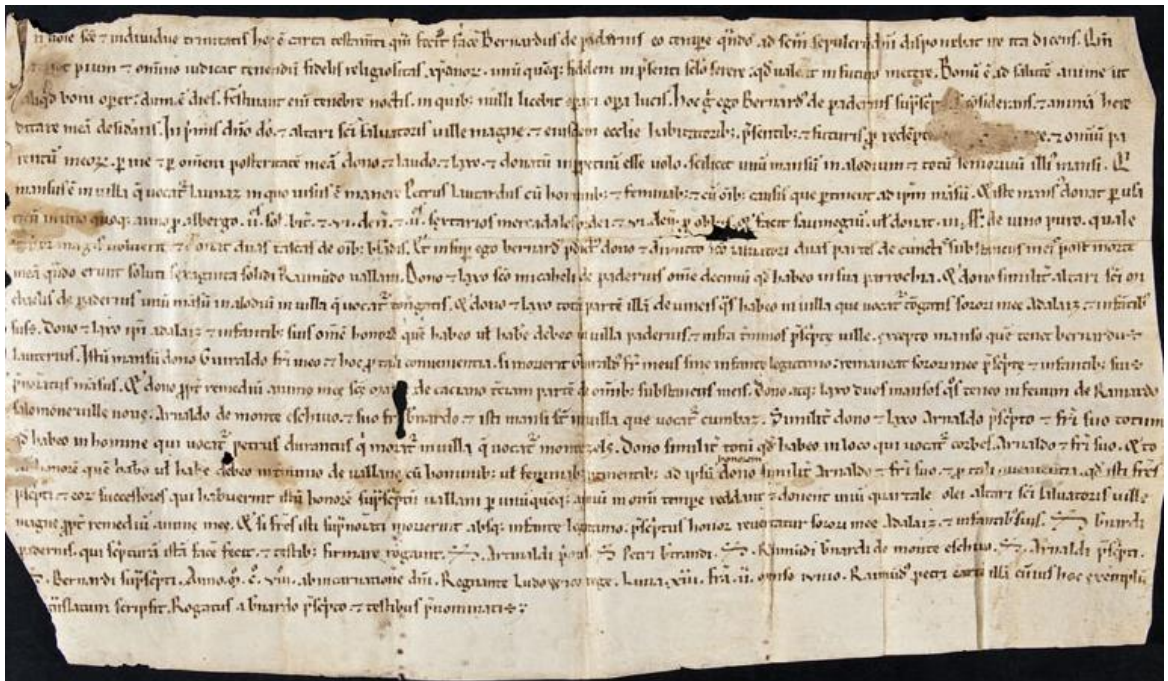 n noīe scē ⁊ individue trinitatis hec ē carta testam̄ti qm̄ fecit face Bernardus de padernis eo tempre qn̄do ad sem̄ sepulcrū dn̄i disponebat ire ita dicens. Qm̄
pium ⁊ omnino iudicat tenendū fidelis religiositas xp̄ianor. unū quēq; fidelem in p̄senti sclo serere qd valeat in futuro metere. Bonū ē ad salutē anime ut
aliqd boni operet dum ē dies. festinant eni tenebre noctis. in quib; nulli licebit opari opa lucis. Hoc ḡ ego Bernard' de paderns sup̄sc̄p considerans. ⁊ animā here
ditare meā desidans. In p̄mis dn̄o dō. ⁊ altari sc̄i salvatoris ville magne. ⁊ eiusdem ecclie habitatorib; p̄sentib; ⁊ futuris. p redēpt e. ⁊ omiū pa
rentū meor. p me ⁊ p omem posteritatē meā dono. ⁊ laudo. ⁊ laxo. ⁊ donatū inppetuū esse volo. scilicet unū mansū in alodium ⁊ totū seniorivū illi' mansi. Q
mansus ē in villa q̄ vocat launaz in quo visus ē manere Petrus lautardus cū hominib; ⁊ feminab; ⁊ cū oīb; causis que ptinent ad ip̄m māsū. & iste mans' donat p usa
ticū in uno quoq; anno p albergo .ii. sol. ⁊ .vi. den̄. ⁊ sextarios mercadales ⁊ .vi. den̄. p & facit saumegiū. ul donat .iii. de vino puro. quale
voluerit ⁊ donat duas tascas de oīb; blad. Et insup ego bernard' p̄dict' dono ⁊ dimitto sc̄o salvatori duas partes de cunctis substanciis meis post morte
meā qn̄do erunt soluti sexaginta solidi Raimūdo vallani. Dono ⁊ laxo sc̄o micaheli de padernis ome decimū qd habeo in sua parrochia. & dono similit altari sc̄i mi
chaelis de padernis unū māsū in alodiū in villa q̄ vocat congatis. & dono ⁊ laxo totā partē illā de vineis q̄s habeo in villa que vocat congatis sorori mee Adalaiz ⁊ infantib;
suis. Dono ⁊ laxo ipi adalaiz ⁊ infantib; suis omē honorē quē habeo ul habe debeo in villa padernis. ⁊ infra tm̄inos p̄sc̄pte ville. excepto manso quē tenet bernardus
lauterius. Istū mansū dono Guiraldo fri meo ⁊ hoc p tali convenientia. Si morierit Guirald' fr̄ meus sine infante legittimo. remaneat sorori mee p̄sc̄pte ⁊ infantib; suis
p̄noratus māsus. & dono ppt remediū anime mee sc̄e de caciano tc̄iam partē de omib; substanciis meis. Dono atq; laxo duos mansos q̄s teneo in fevum de Ramundo
salomone ville nove. Arnaldo de monte eschivo. ⁊ suo fri b̄nardo. ⁊ isti mansi st̄ in villa que vocat cumbaz. Similit dono ⁊ laxo Arnaldo p̄sc̄pto ⁊ fri suo totum
qd habeo in homine qui vocat petrus durantus q̄ morat in villa q̄ vocat montels. Dono similit totū qd habeo in loco qui vocat corbes. Arnaldo ⁊ fri suo. & to
honorē quē habeo ul habe debeo in tm̄ino de vallano cū hominib; ul feminab; ptinentib; ad ip̄sū honorem dono similit Arnaldo ⁊ fri suo. ⁊ p tali convenientia. qd isti fr̄es
p̄sc̄pti ⁊ eor successores qui habuerint istū honorē sup̄sc̄ptū vallani p unūqueq; annū in omi tempe reddant ⁊ donent unū quartale olei altari sc̄i salvatoris ville
magne ppt remediū anime mee. & si fr̄es isti sup̄norati morierint absq; infante legitimo. p̄sc̄ptus honor revertatur sorori mee Adalaiz. ⁊ infantib; suis. b̄nardi
padernis. qui sc̄pturā istā face fecit. ⁊ testib; firmare rogavit. Arnualdi Petri b̄trandi. Raimūdi b̄nardi de monte eschivo. Arnaldi p̄sc̄pti.
Bernardi sup̄sc̄pti. Anno. m̊. c̊. xviii. ab incarnatione dn̄i. Regnante Ludovico rege. Luna .xiii. fr̄ia .ii. mense iunio. Raimūd' petri cuius hoc exemplū
translatum scripsit. Rogatus a b̄nardo p̄sc̄pto ⁊ testibus p̄nominatis